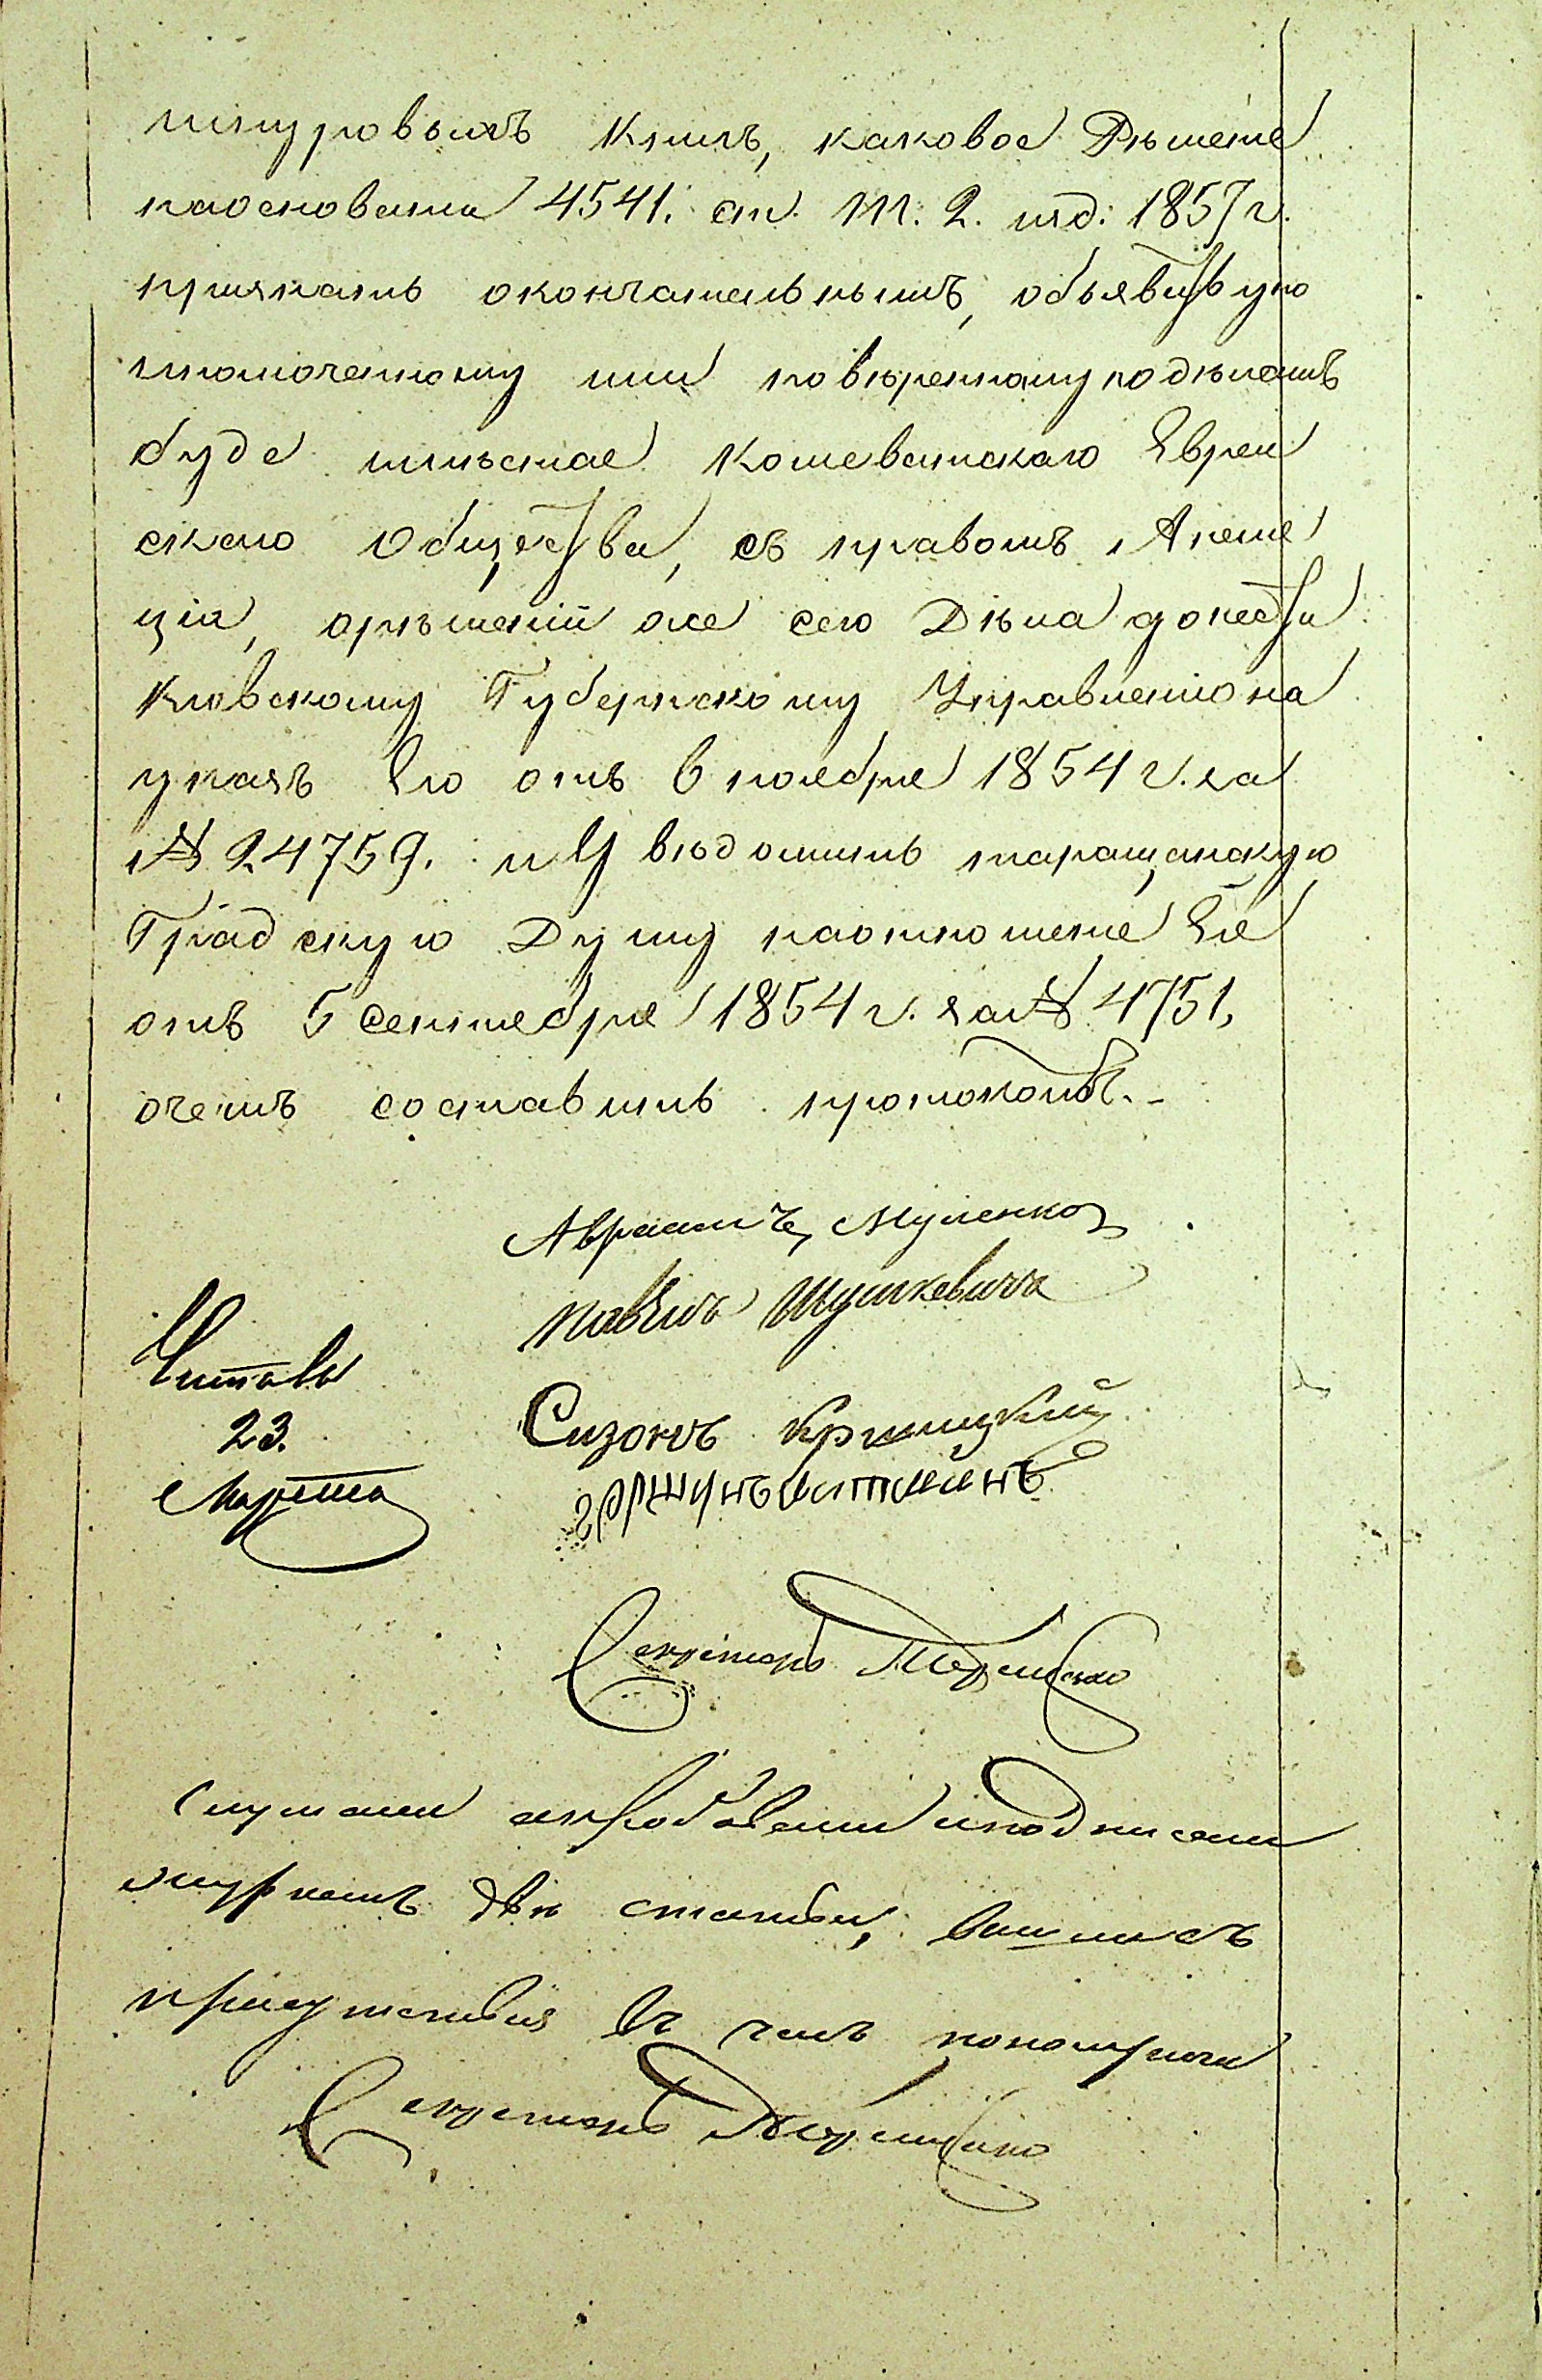 шнуровыхъ Книгъ, каковое Рѣшеніе
наоснованіи 4541. ст. т. 2. изд: 1857 г.
признать окончательнымъ, объявить упо
лномоченному или повѣренному подѣламъ
буде имѣется Кошеватскаго Еврей
скаго Общества, съ правомъ Апелля
ціи, орѣшеніи же сего Дѣла донести
Кіевскому Губернскому Управленію на
указъ Его отъ 6 ноября 1854 г. за
№ 24759. и Увѣдомить таращанскую
Градскую Думу наотношеніе Ея
отъ 5 Сентября 1854 г. за № 4751,
очемъ составить протоколъ.-
Авраамъ
Павелъ Шушкевичъ
Читалъ
23.
Марта
Сизонъ Криницкій
Секретарь
Слушали апробовали и подписали
журналъ двѣ статьи, вышли съ
присутствія въ часъ пополудни
Секретарь